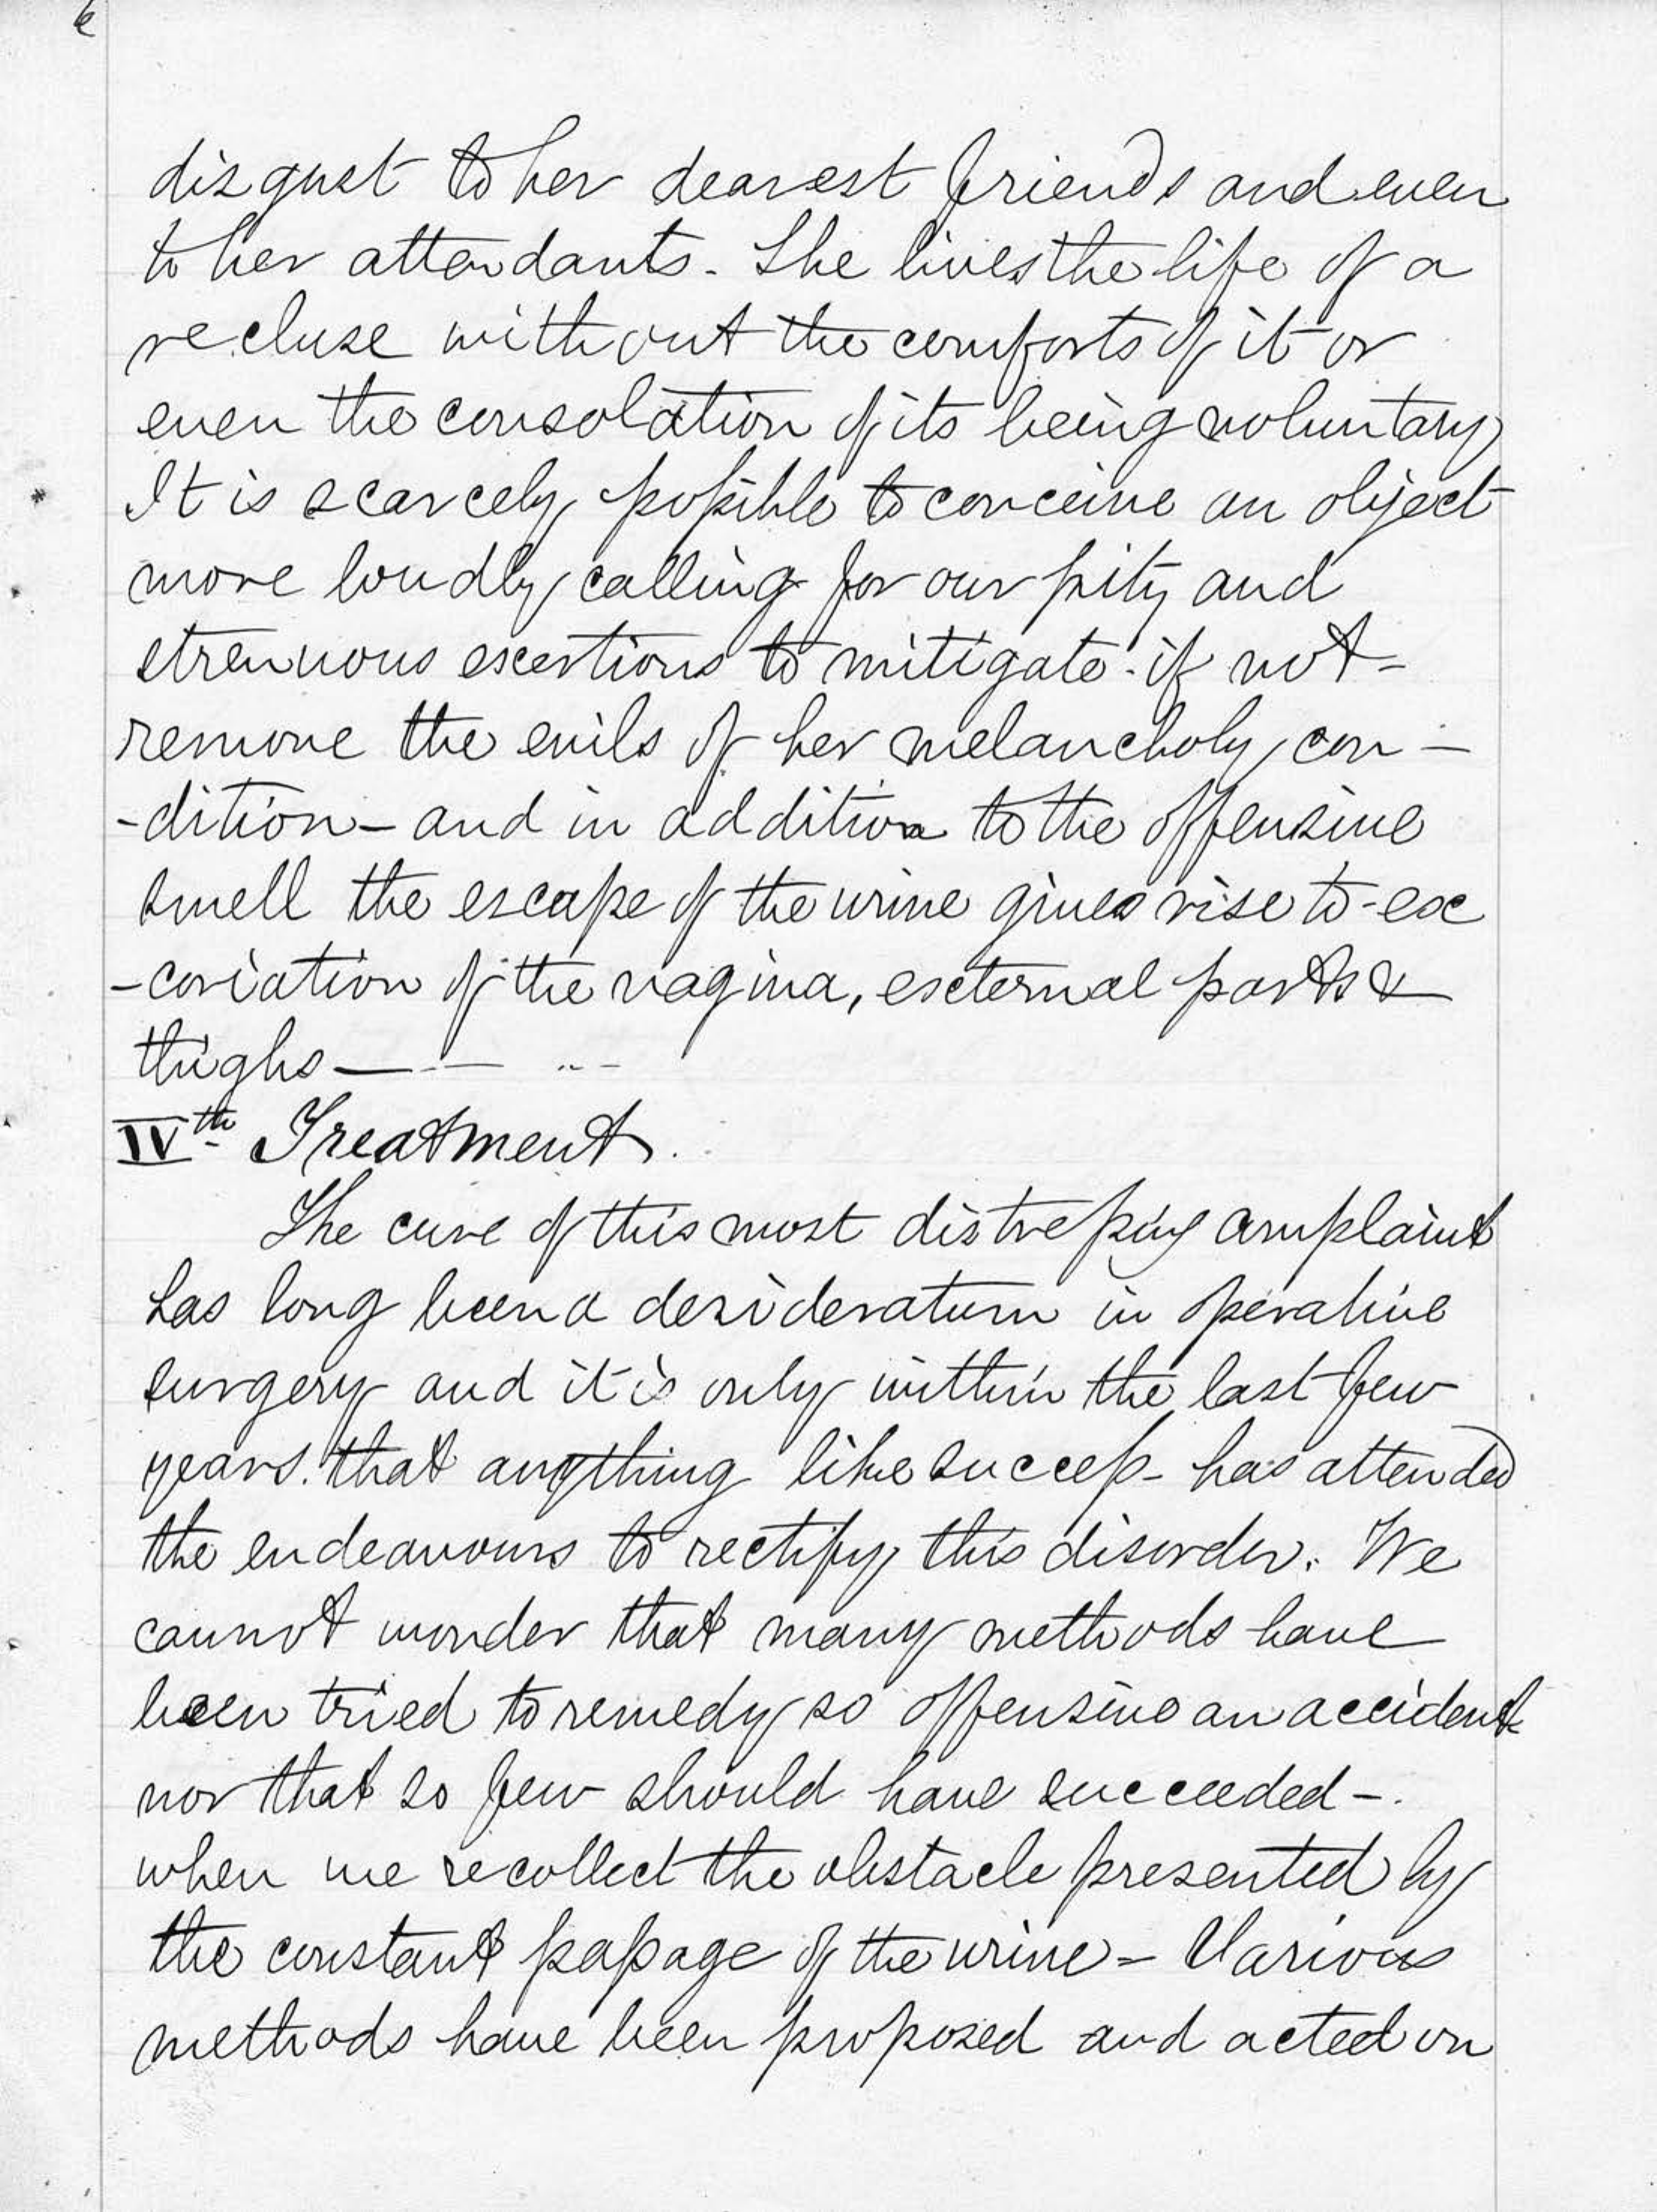 6
disgust to her dearest friends and even
to her attendants - She lives the life of a
recluse without the comforts of it or
even the consolation of its being voluntary
It is scarcely possible to conceive an object
more loudly calling for our pity and
strenuous exertions to mitigate if not -
remove the evils of her melancholy con -
- dition - and in addition to the offensive
smell the escape of the urine gives rise to ex
- coriation of the vagina, external parts &
thighs —
IVth Treatment.
The cure of this most distressing complaint
has long been a desideratum in operative
surgery and it is only within the last few
years. that anything like success has attended
the endeavours to rectify this disorder. We
cannot wonder that many methods have
been tried to remedy so offensive an accident
nor that so few should have succeeded -.
when we recollect the obstacle presented by
the constant passage of the urine - Various
methods have been proposed and acted on